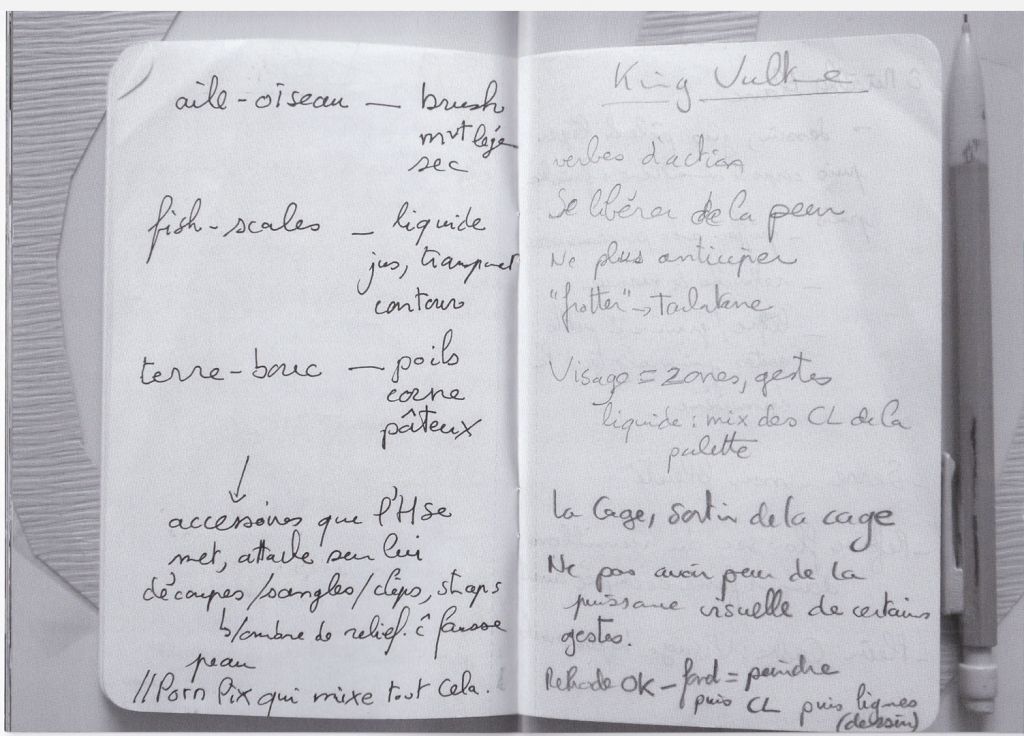 aile-oiseau — brush
mvt lége
sec
fish-scales — liquide
jus, transparent
contour
terre-bouc — poils
corne
pâteux
accessoires que l'H se
met, attache sur lui
découpes/sangles/clips, straps
/ombre de relief. ĉ fausse
peau
//Porn Pix qui mixe tout cela.
King Vulture
verbes d'action
Se libérer de la peur
Ne plus anticiper
"frotter" → Tarlatane
Visage = zones, gestes
liquide : mix des CL de la
palette
La Cage, sortir de la cage
Ne pas avoir peur de la
puissance visuelle de certains
gestes.
OK – fond = peindre
puis CL puis lignes
(dessin)